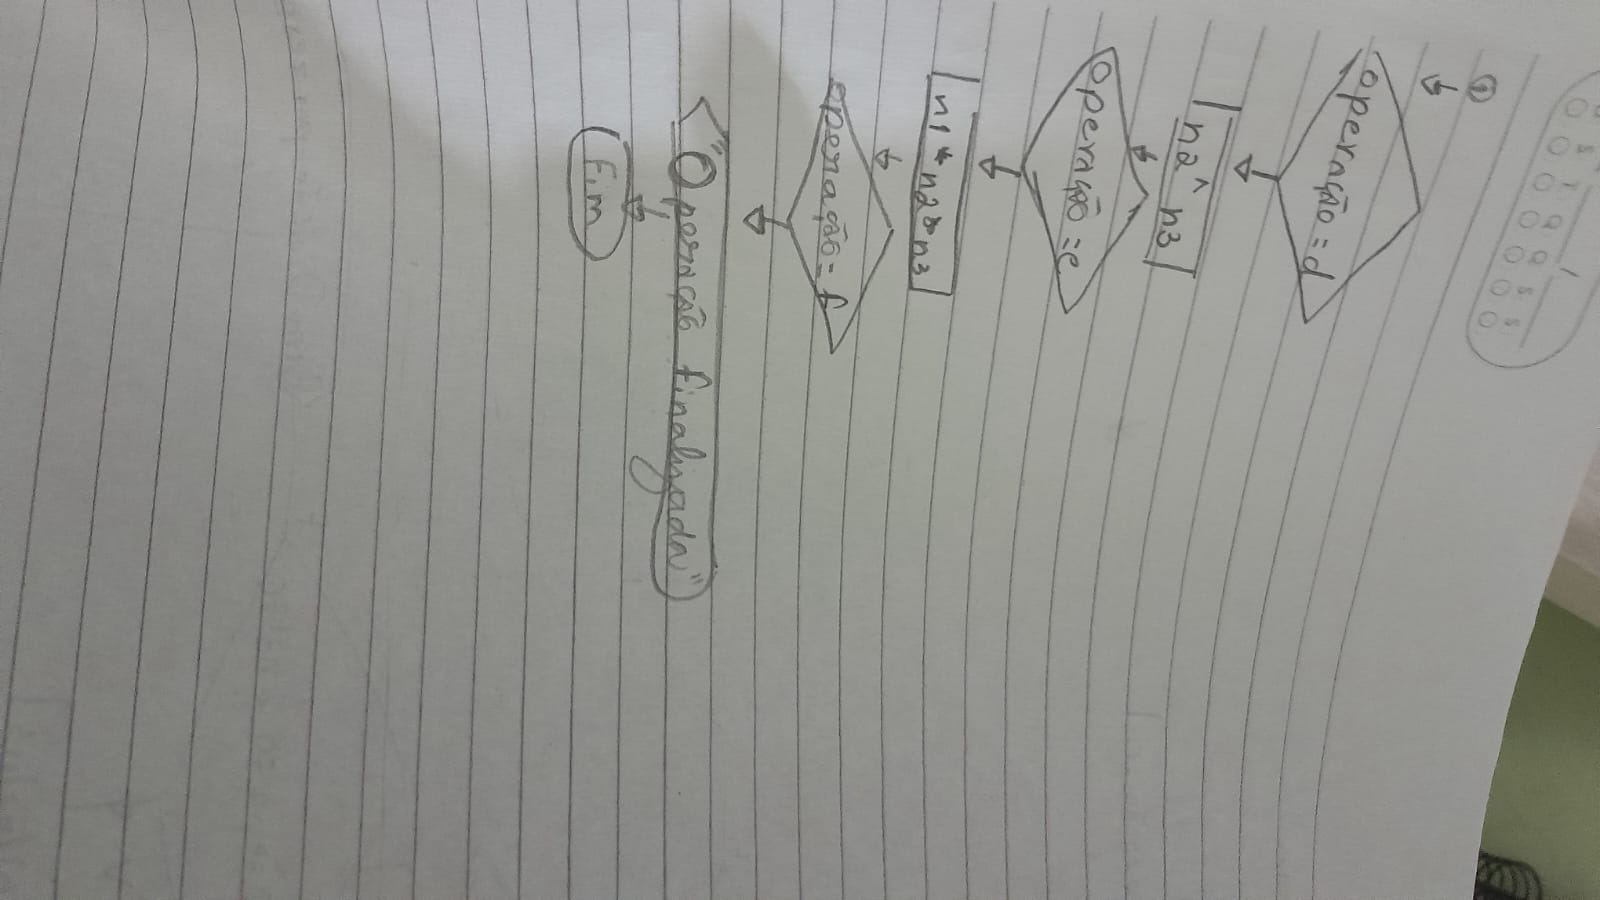 operação = d
n2 ^ n3
operação = e
n1 * n2 * n3
operação = f
"Operação finalizada"
Fim